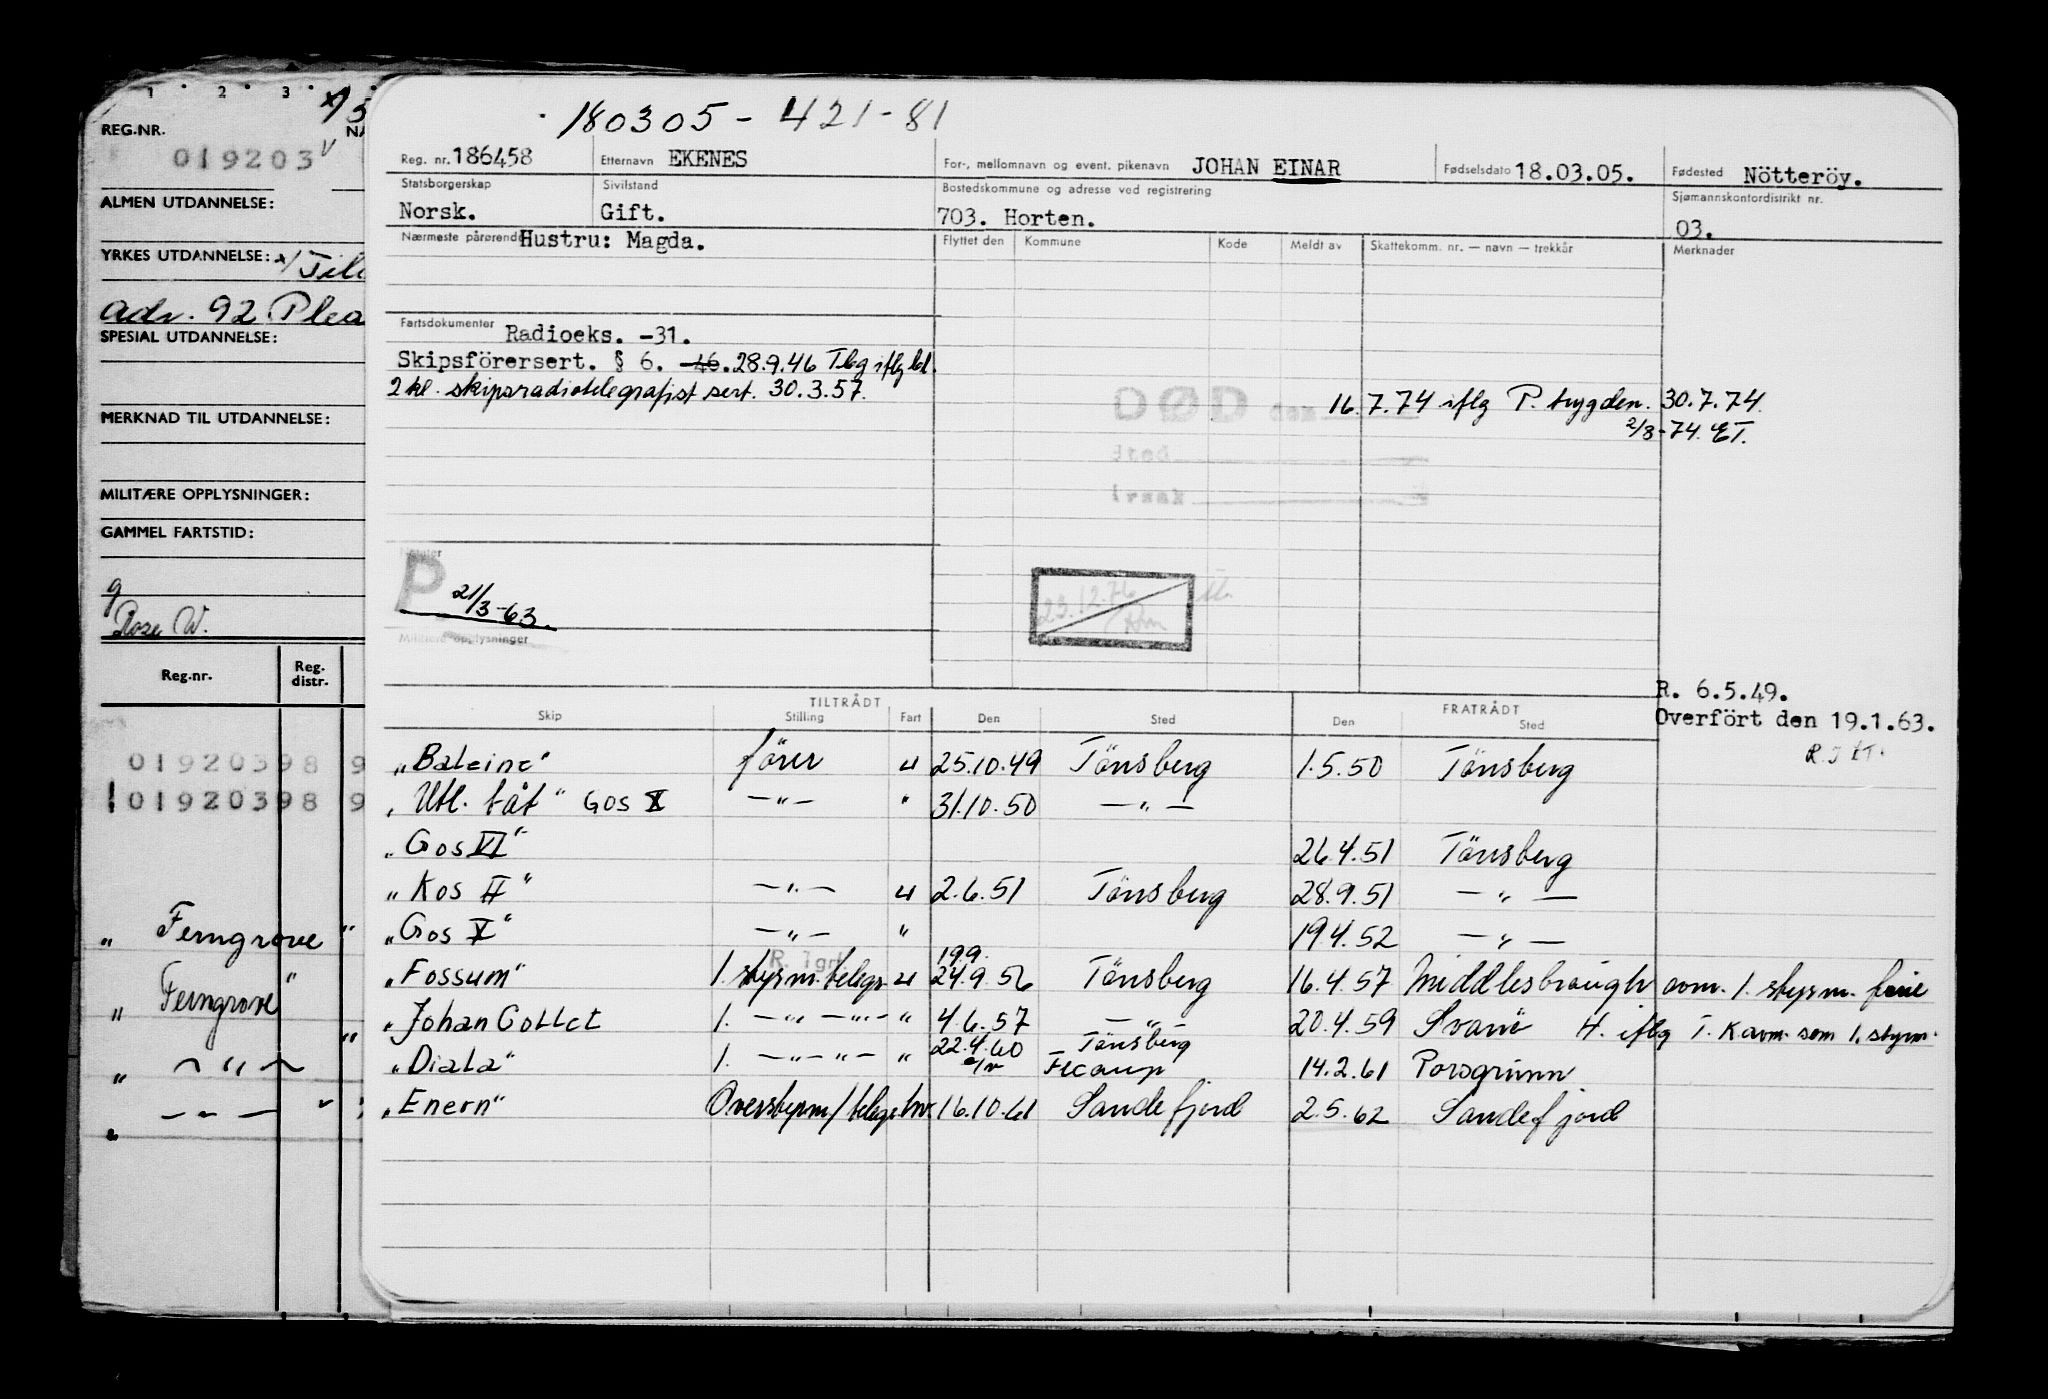 1 2 3
REG.NR.
019203
ALMEN UTDANNELSE:
YRKES UTDANNELSE:
adr. 92. Plea
SPESIAL UTDANNELSE:
MERKNAD TIL UTDANNELSE:
MILITÆRE OPPLYSNINGER:
GAMMEL FARTSTID:
g
Rose W.
Reg.nr. Reg. distr.
01920398 9
01920398 9
„ Ferngrove "
„ Ferngrove "
„ — " — "
— " —
180305 - 421-81
Reg. nr. 186458 Etternavn EKENES For-, mellomnavn og event. pikenavn JOHAN EINAR Fødselsdato 18.03.05. Fødested Nötteröy.
Statsborgerskap Sivilstand Bostedskommune og adresse ved registrering Sjømannskontordistrikt nr.
Norsk. Gift. 703. Horten. 03.
Nærmeste pårørende Hustru: Magda. Flyttet den Kommune Kode Meldt av Skattekomm. nr. — navn — trekkår Merknader
Fartsdokumenter Radioeks. -31.
Skipsförersert. § 6. -46. 28.9.46 Tlbg iflg
2 kl. skipsradiotelegrafist sert. 30.3.57.
DØD den 16.7.74 iflg P. trygden. 30.7.74.
2/8-74. ET.
sted
årsak
P 21/3-63.
Militære opplysninger
23.12.76
R. 6.5.49.
Overfört den 19.1.63.
TILTRÅDT FRATRÅDT
Skip Stilling Fart Den Sted Den Sted
„Baleine" förer u 25.10.49 Tönsberg 1.5.50 Tönsberg
„Utl. båt" GOS X — " — " 31.10.50 — " —
„Gos VI" 26.4.51 Tönsberg
„Kos II" — " — u 2.6.51 Tönsberg 28.9.51 — " —
„Gos X" — " — " 19.4.52 — " —
19.9.
„Fossum" 1. styrm. telegr. u 24.9.56 Tönsberg 16.4.57 Middlesbrough avm. 1. styrm. ferie
„Johan Collet 1. — " — " — " 4.6.57 — " — 20.4.59 Svanö H. iflg T.K avm. som 1. styrm.
„Diala" 1. — " — " — " 22.4.60 Tönsberg Fecamp 14.2.61 Porsgrunn
„Enern" Overstyrm/telegr. 16.10.61 Sandefjord 2.5.62 Sandefjord